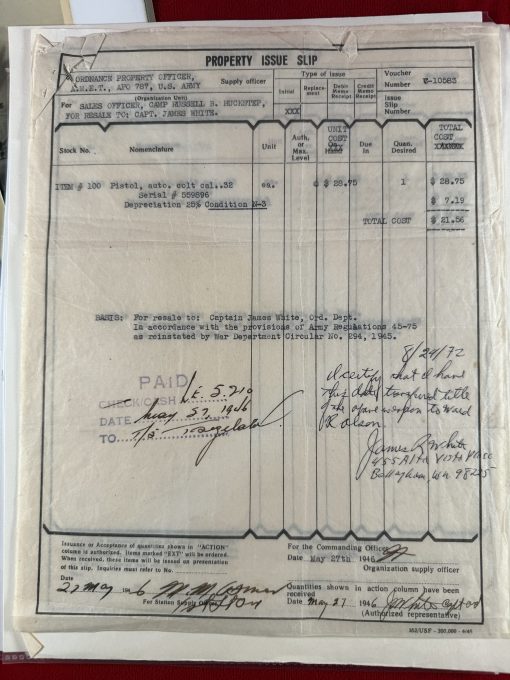 PROPERTY ISSUE SLIP
ORDNANCE PROPERTY OFFICER,
A.M.E.T., APO 787, U.S. ARMY
Supply officer
(Organization Unit)
For SALES OFFICER, CAMP RUSSELL B. HUCKSTEP,
FOR RESALE TO: CAPT. JAMES WHITE.
Type of issue
Initial Replacement Debit Memo Receipt Credit Memo Receipt
XXX
Voucher Number C-10583
Issue Slip Number
Stock No. Nomenclature Unit Auth. or Max. Level UNIT COST On Hand Due In Quan. Desired TOTAL COST
ITEM # 100 Pistol, auto. colt cal..32 ea. $ 28.75 1 $ 28.75
Serial # 559896
Depreciation 25% Condition N-3 $ 7.19
TOTAL COST $ 21.56
BASIS: For resale to: Captain James White, Ord. Dept.
In accordance with the provisions of Army Regulations 45-75
as reinstated by War Department Circular No. 294, 1945.
8/24/72
I certify that I have
this date transfered title
of the above weapon to Ward
R Olson.
James R White
455 Alta Vista Place
Bellingham, WA 98225
PAID
CHECK/CASH LE. 5.210
DATE May 27, 1946
TO
Issuance or Acceptance of quantities shown in "ACTION"
column is authorized. Items marked "EXT" will be ordered.
When received, these items will be issued on presentation
of this slip. Inquiries must refer to No.
Date
27 May 1946
For Station Supply Officer
For the Commanding Officer
Date May 27th 1946
Organization supply officer
Quantities shown in action column have been
received
Date May 27 1946 J R White Capt Ord
(Authorized representative)